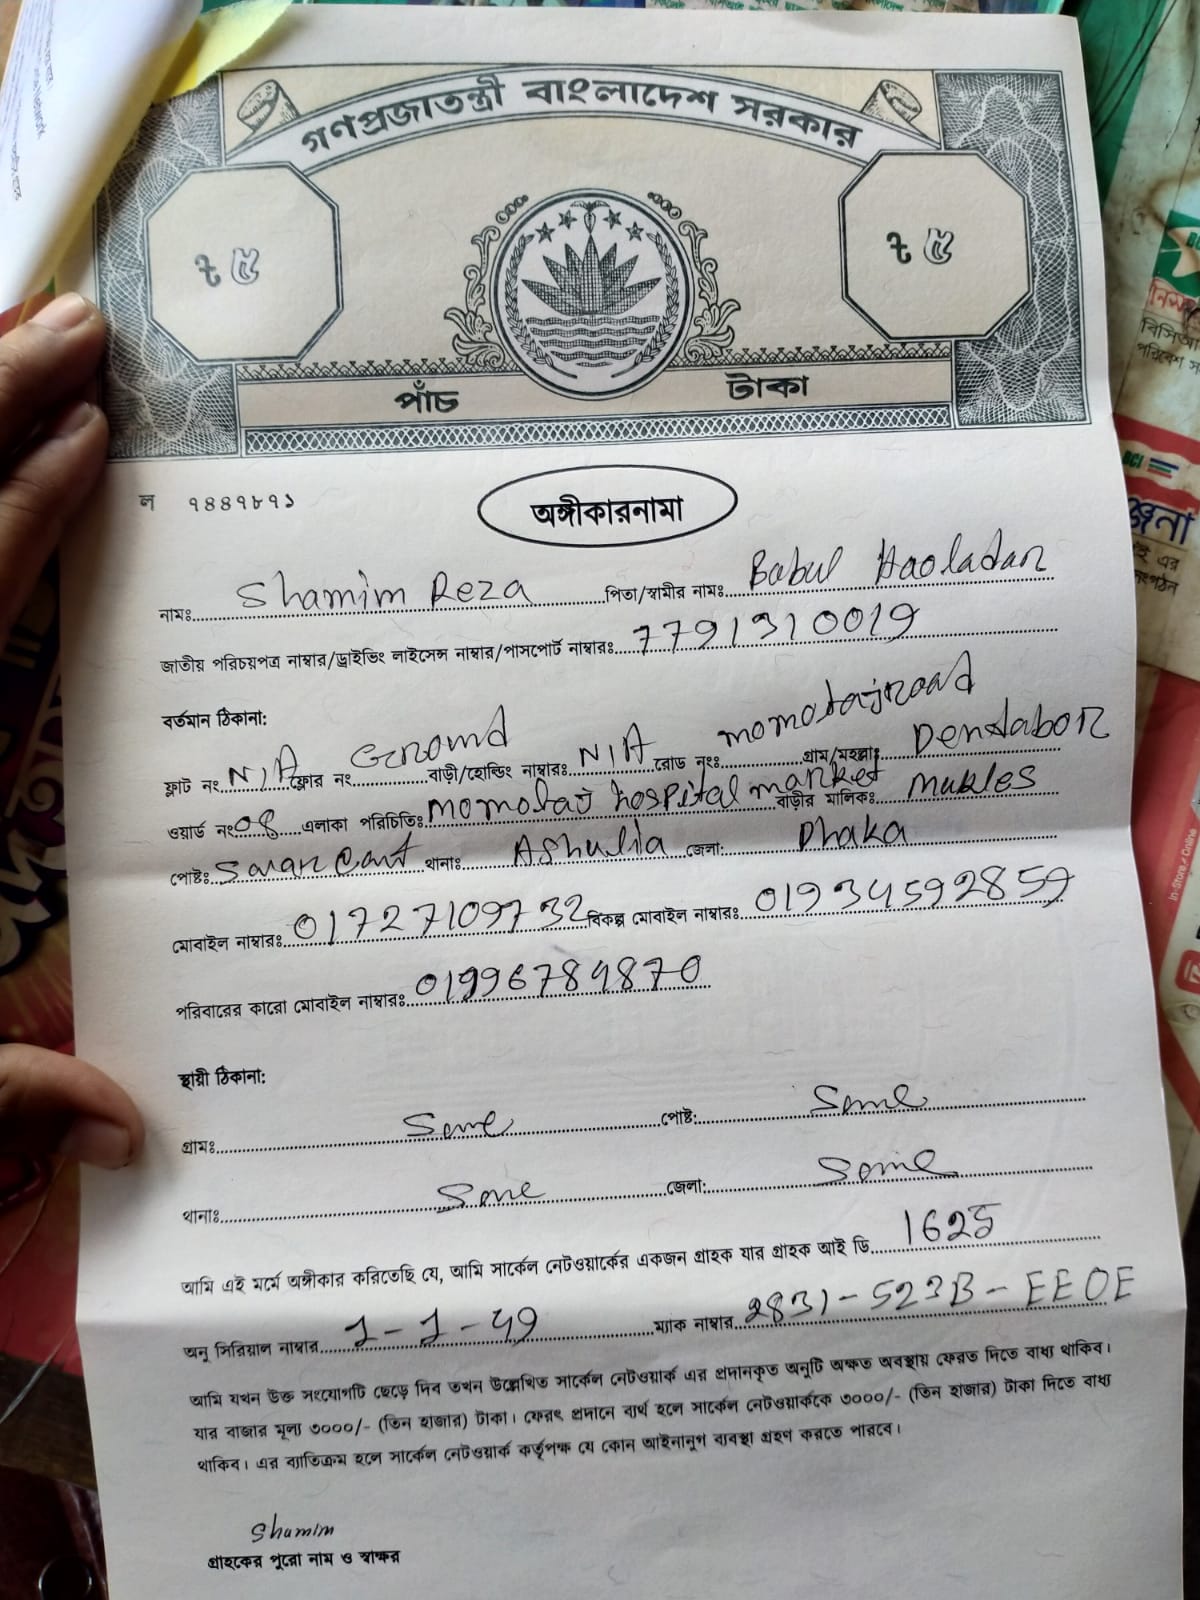 গণপ্রজাতন্ত্রী বাংলাদেশ সরকার
৳ ৫ ৳ ৫
পাঁচ টাকা
ল ৭৪৪৭৮৭১
অঙ্গীকারনামা
নামঃ Shamim Reza পিতা/স্বামীর নামঃ Babul Haoladar
জাতীয় পরিচয়পত্র নাম্বার/ড্রাইভিং লাইসেন্স নাম্বার/পাসপোর্ট নাম্বারঃ 7791310019
বর্তমান ঠিকানা:
ফ্লাট নং N/A ফ্লোর নং Ground বাড়ী/হোল্ডিং নাম্বারঃ N/A রোড নংঃ momotajroad গ্রাম/মহল্লাঃ Dendabor
ওয়ার্ড নং 08 এলাকা পরিচিতিঃ momotaj hospital market বাড়ীর মালিকঃ Mukles
পোষ্টঃ Savar Cant থানাঃ Ashulia জেলা: Dhaka
মোবাইল নাম্বারঃ 01727109732 বিকল্প মোবাইল নাম্বারঃ 01934592859
পরিবারের কারো মোবাইল নাম্বারঃ
স্থায়ী ঠিকানা:
গ্রামঃ Same পোষ্ট: Same
থানাঃ Same জেলা: Same
আমি এই মর্মে অঙ্গীকার করিতেছি যে, আমি সার্কেল নেটওয়ার্কের একজন গ্রাহক যার গ্রাহক আই ডি 1625
অনু সিরিয়াল নাম্বার ম্যাক নাম্বার 2831-523B-EE0E
আমি যখন উক্ত সংযোগটি ছেড়ে দিব তখন উল্লেখিত সার্কেল নেটওয়ার্ক এর প্রদানকৃত অনুটি অক্ষত অবস্থায় ফেরত দিতে বাধ্য থাকিব।
যার বাজার মূল্য ৩০০০/- (তিন হাজার) টাকা। ফেরৎ প্রদানে ব্যর্থ হলে সার্কেল নেটওয়ার্ককে ৩০০০/- (তিন হাজার) টাকা দিতে বাধ্য
থাকিব। এর ব্যতিক্রম হলে সার্কেল নেটওয়ার্ক কর্তৃপক্ষ যে কোন আইনানুগ ব্যবস্থা গ্রহণ করতে পারবে।
Shamim
গ্রাহকের পুরো নাম ও স্বাক্ষর